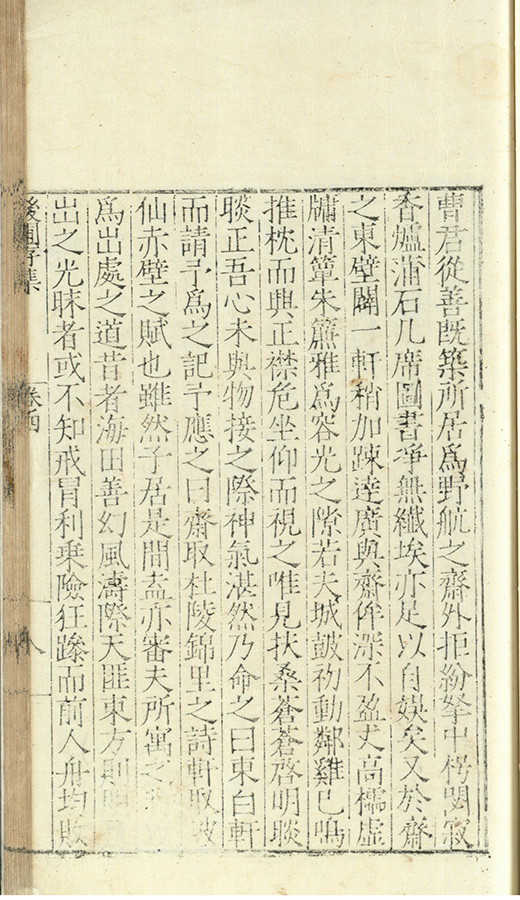 曹君從善既築所居爲野航之齋外拒紛拏中樗閴寂
香爐蒲石几席圖書淨無纖埃亦足以自娛矣又於齋
之東壁闢一軒稍加疎達廣與齋侔深不盈丈高櫺虛
牖清簟朱簾雅爲容光之隙若夫城鼓初動鄰雞已鳴
推枕而興正襟危坐仰而視之唯見扶桑蒼蒼啓明睒
睒正吾心未與物接之際神氣湛然乃命之曰東白軒
而請予爲之記予應之曰齋取杜陵錦里之詩軒取坡
仙赤壁之賦也雖然子居是間盍亦審夫所寓之
爲出處之道昔者海田善幻風濤際天匪東方則明
出之光睐者或不知戒冒利乗險狂蹽而前人舟均敗
後圃存集
卷四
八